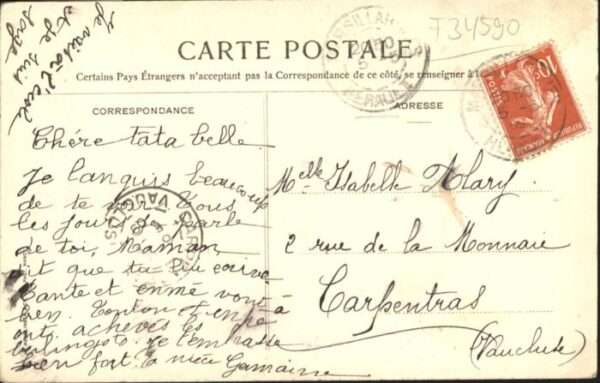 Je vais à l'école
et je suis
sage
F34590
MARSEILLAN
HERAULT
CARTE POSTALE
Certains Pays Étrangers n'acceptant pas la Correspondance de ce côté, se renseigner à la
CORRESPONDANCE
ADRESSE
10
POSTES
Chère tata belle.
Je languis beaucoup
de te voir. Tous
les jours je parle
de toi, Maman
dit que tu lui écrive
Tante et enmé vont
bien. Tonton et
onts achevés les
Je t'embrasse
bien fort. ta nièce Germaine
VAUCLUSE
Melle Isabelle Mary.
2 rue de la Monnaie
à Carpentras
(Vaucluse)